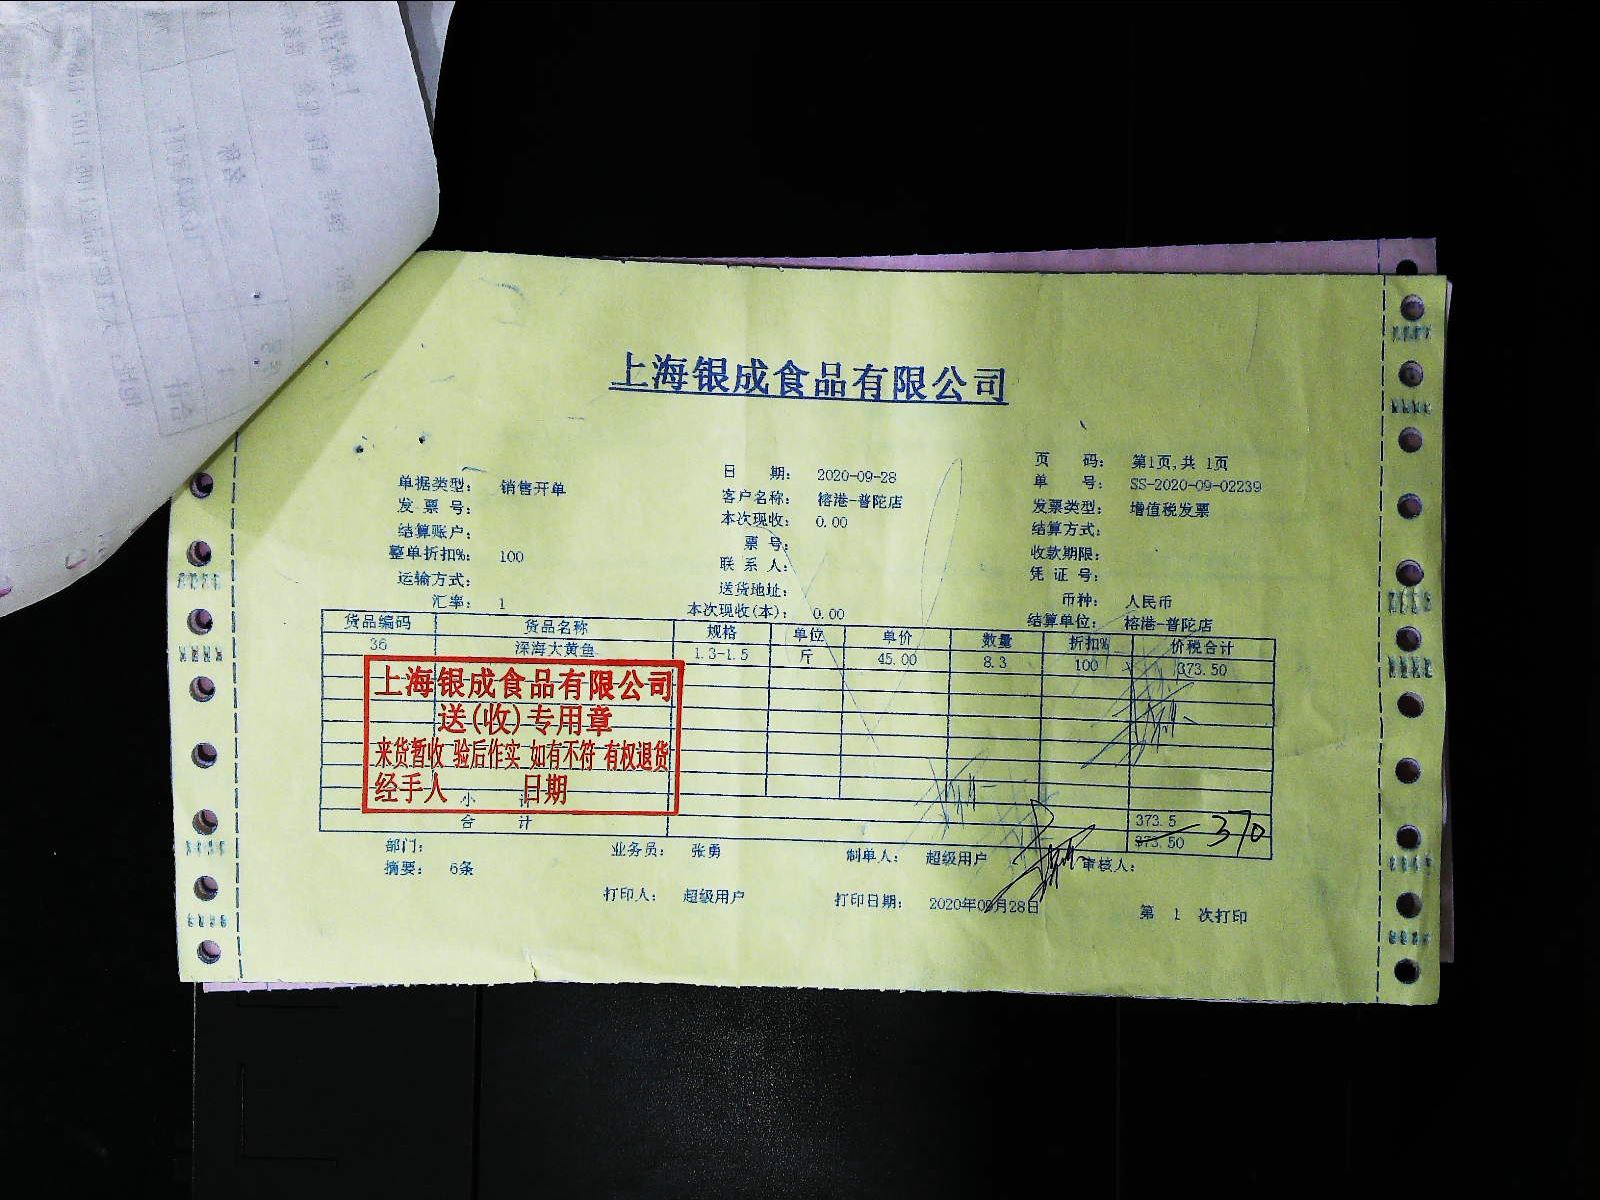 上海银成食品有限公司
单据类型: 销售开单 日 期: 2020-09-28 页 码: 第1页,共 1页
发 票 号: 客户名称: 榕港-普陀店 单 号: SS-2020-09-02239
结算账户: 本次现收: 0.00 发票类型: 增值税发票
整单折扣%: 100 票 号: 结算方式:
运输方式: 联 系 人: 收款期限:
汇率: 1 送货地址: 凭 证 号:
本次现收(本): 0.00 币种: 人民币
结算单位: 榕港-普陀店
货品编码 货品名称 规格 单位 单价 数量 折扣% 价税合计
36 深海大黄鱼 1.3-1.5 斤 45.00 8.3 100 373.50
上海银成食品有限公司
送(收)专用章
来货暂收 验后作实 如有不符 有权退货
经手人 日期
小 计 373.5
合 计 373.50 370
部门: 业务员: 张勇 制单人: 超级用户 审核人:
摘要: 6条
打印人: 超级用户 打印日期: 2020年09月28日 第 1 次打印